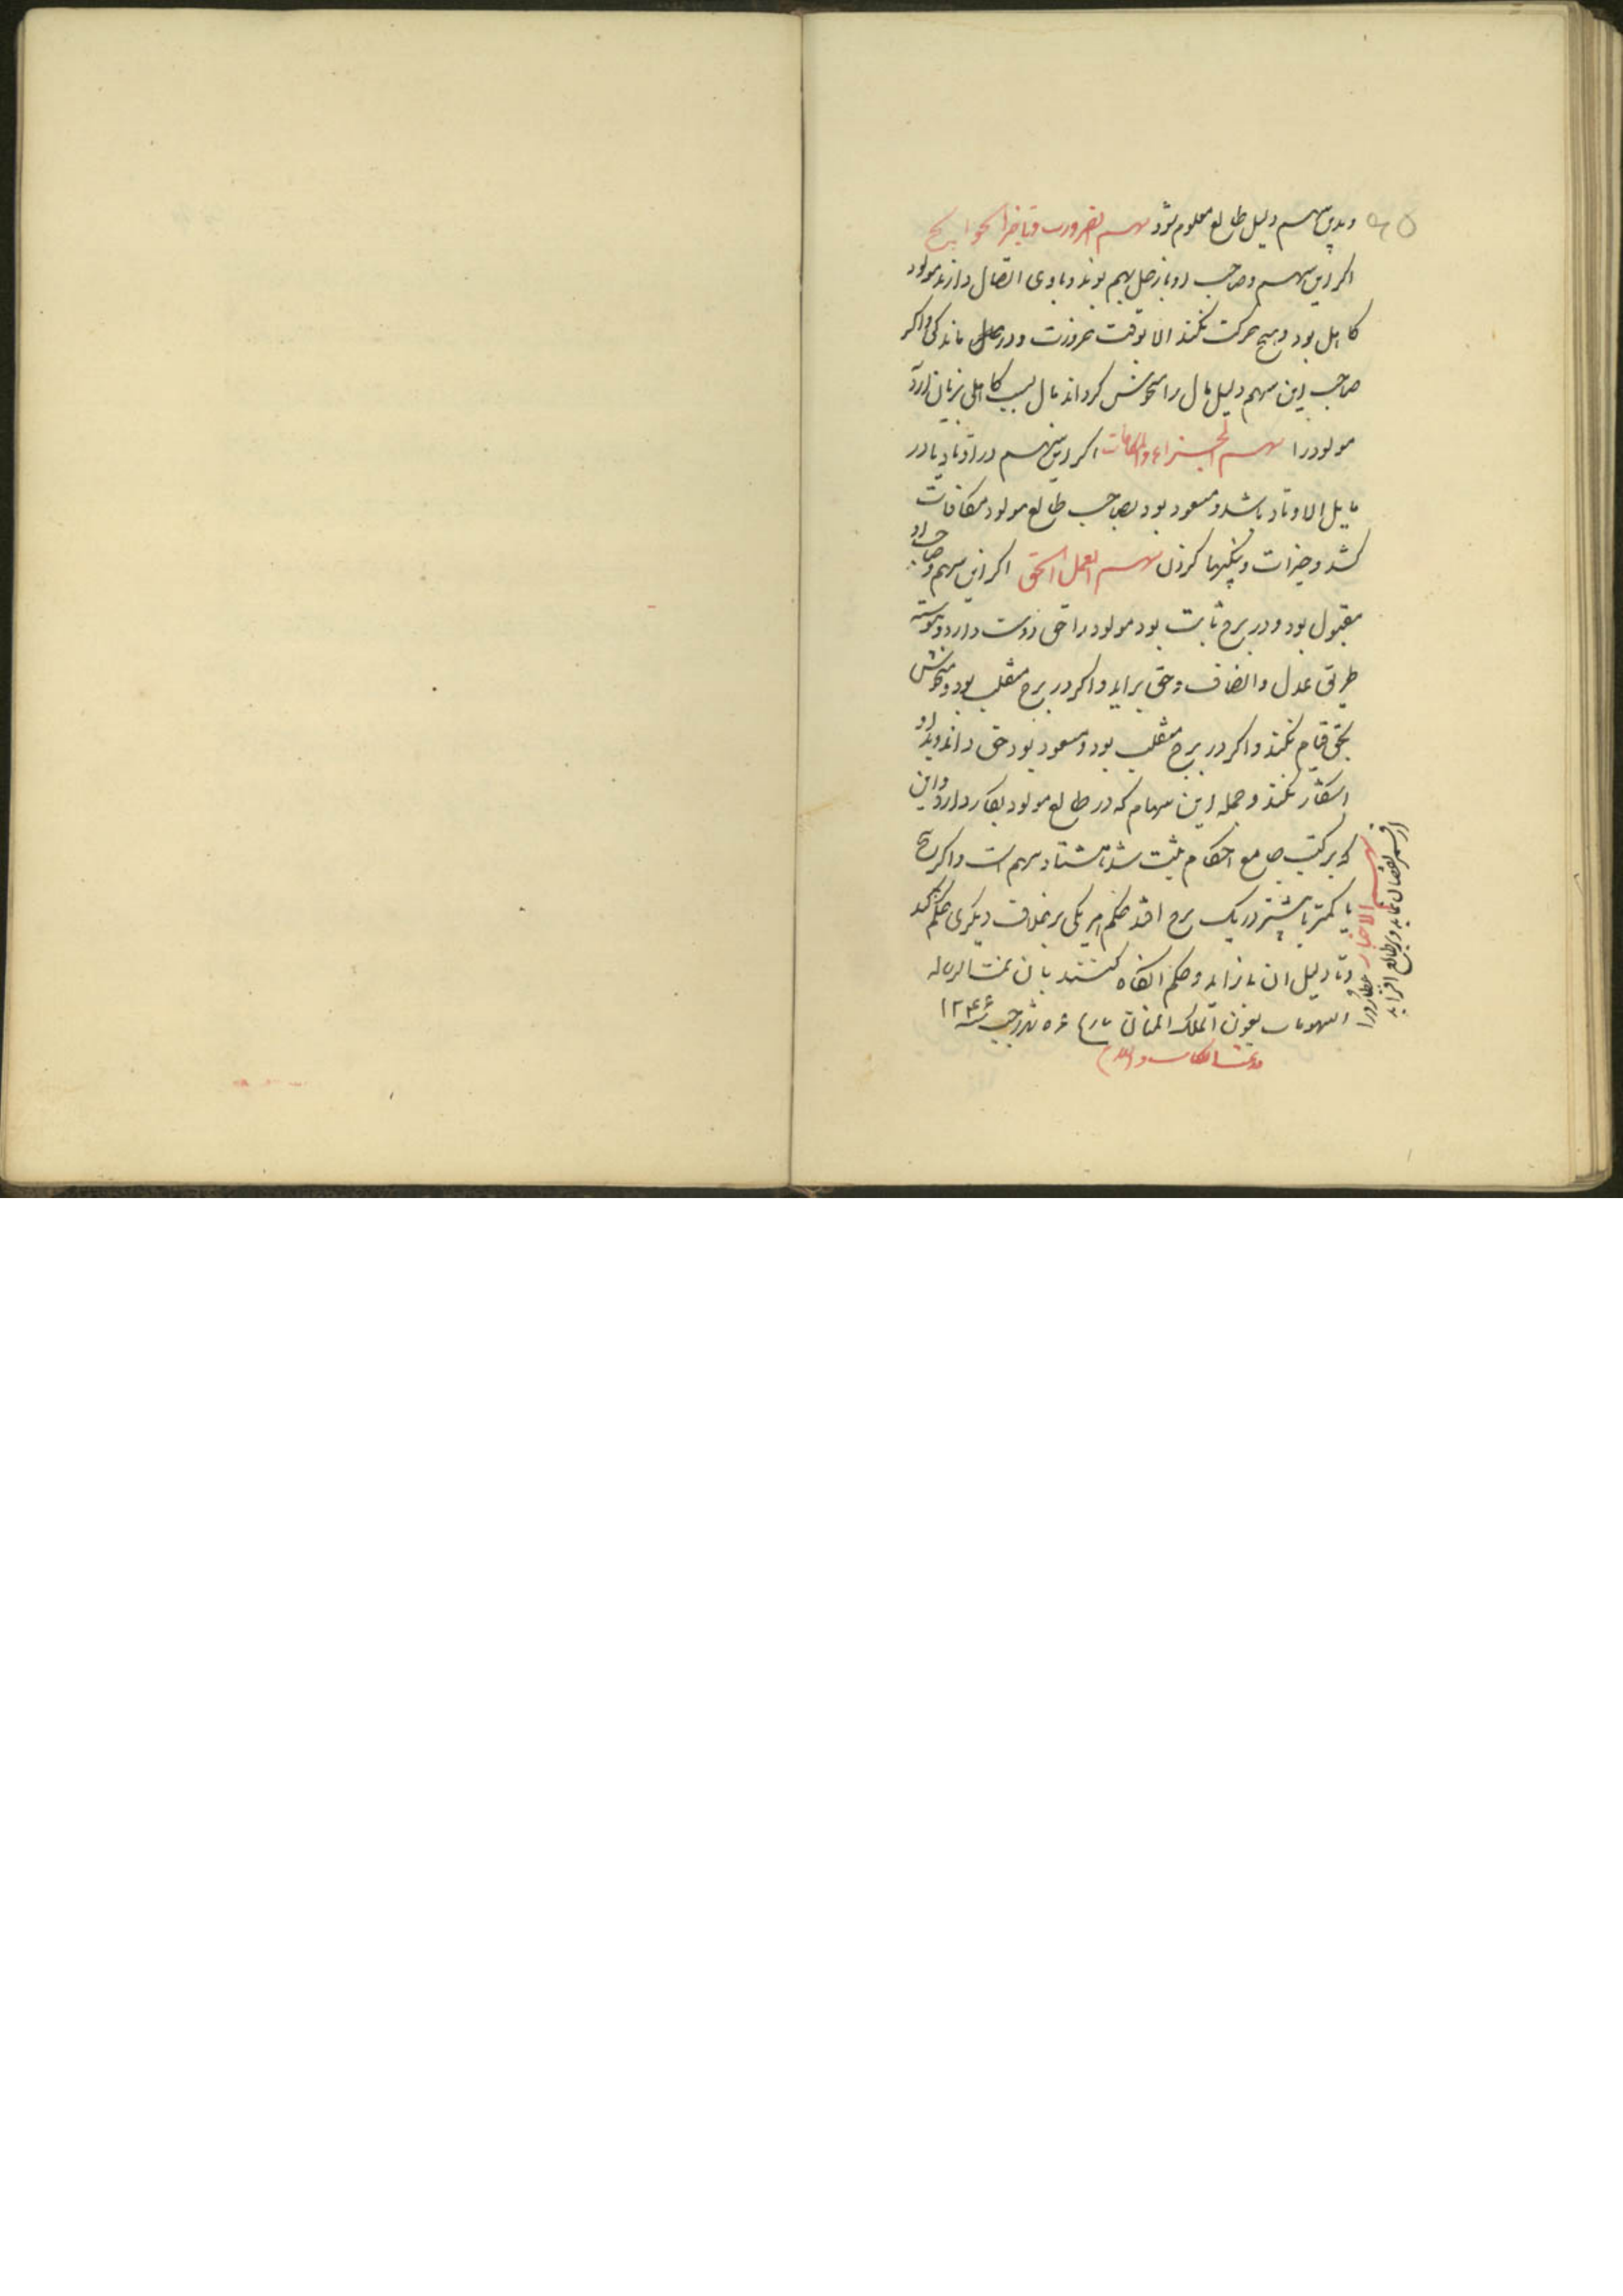 وبدین سهم دلیل طالع معلوم شود سهم الضرورت وتاخیر الحوایج
اکر این سهم وصاحب او با زحل بهم بوند وباوی اتصال دارند مولود
کاهل بود وهیچ حرکت نکند الا بوقت ضرورت ودر ماندکی واکر
صاحب این سهم دلیل مال را منحوس کرداند مال بسبب کاهلی بزیان آرد
مولود را سهم الجزاء والمکافات اکر این سهم در اوتاد یا در
مایل الاوتاد باشد ومسعود بود بصاحب طالع مولود مکافات
کشد وخیرات ونیکیها کردن سهم العمل الحق اکر این سهم وصاحب او
مقبول بود ودر برج ثابت بود مولود را حق دوست دارد وپیوسته
طریق عدل وانصاف وحق براید واکر در برج منقلب بود ومنحوس
بحق قیام نکند واکر در برج منقلب بود ومسعود بود حق داند وبدو
اشکار نکند وجمله این سهام که در طالع مولود بکار دارد واین
که بر کتب جامع احکام مثبت شد هشتاد سهم است واکر پنج
یا کمتر یا بیشتر در یک برج افتد حکم هر یکی بر خلاف دیکری حکم نکند
وتا دلیل ان باز اید وحکم انکاه کنند بان تمت الرساله
السهومات بعون الملک المنان بتاریخ شهر رجب سنه ۱۲۴۶
سهم الاخبار عطارد را
از قمر نقصان نماید وبر طالع افزاید